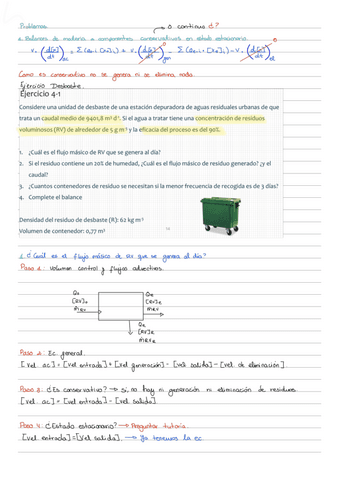 Problemas. → o continuo d?
a. Balances de materia a componentes conservativos en estado estacionario.
V. (d[x]/dt)ac = Σ (Qe,i · [x]i) + V. (d[x]/dt)gen − Σ (Qs,i · [x]s,i) − V. (d[x]/dt)el
Como es conservativo no se genera ni se elimina nada.
Ejercicio Desbaste.
Ejercicio 4-1
Considere una unidad de desbaste de una estación depuradora de aguas residuales urbanas de que
trata un caudal medio de 9401,8 m³ d⁻¹. Si el agua a tratar tiene una concentración de residuos
voluminosos (RV) de alrededor de 5 g m⁻³ y la eficacia del proceso es del 90%.
1. ¿Cuál es el flujo másico de RV que se genera al día?
2. Si el residuo contiene un 20% de humedad, ¿Cuál es el flujo másico de residuo generado? ¿y el
caudal?
3. ¿Cuantos contenedores de residuo se necesitan si la menor frecuencia de recogida es de 3 días?
4. Complete el balance
Densidad del residuo de desbaste (R): 62 kg m⁻³
Volumen de contenedor: 0,77 m³
¿Cuál es el flujo másico de que se genera al día?
Paso 1: Volumen control y flujos advectivos.
Paso 2: Ec. general.
[vel. ac] = [vel entrada] + [vel generación] − [vel salida] − [vel de eliminación]
Paso 3: ¿Es conservativo? → Sí, no hay ni generación ni eliminación de residuos
[vel. ac] = [vel entrada] − [vel salida]
Paso 4: ¿Estado estacionario? → Preguntar tutoría
[vel. entrada] = [vel salida] → Ya tenemos la ec